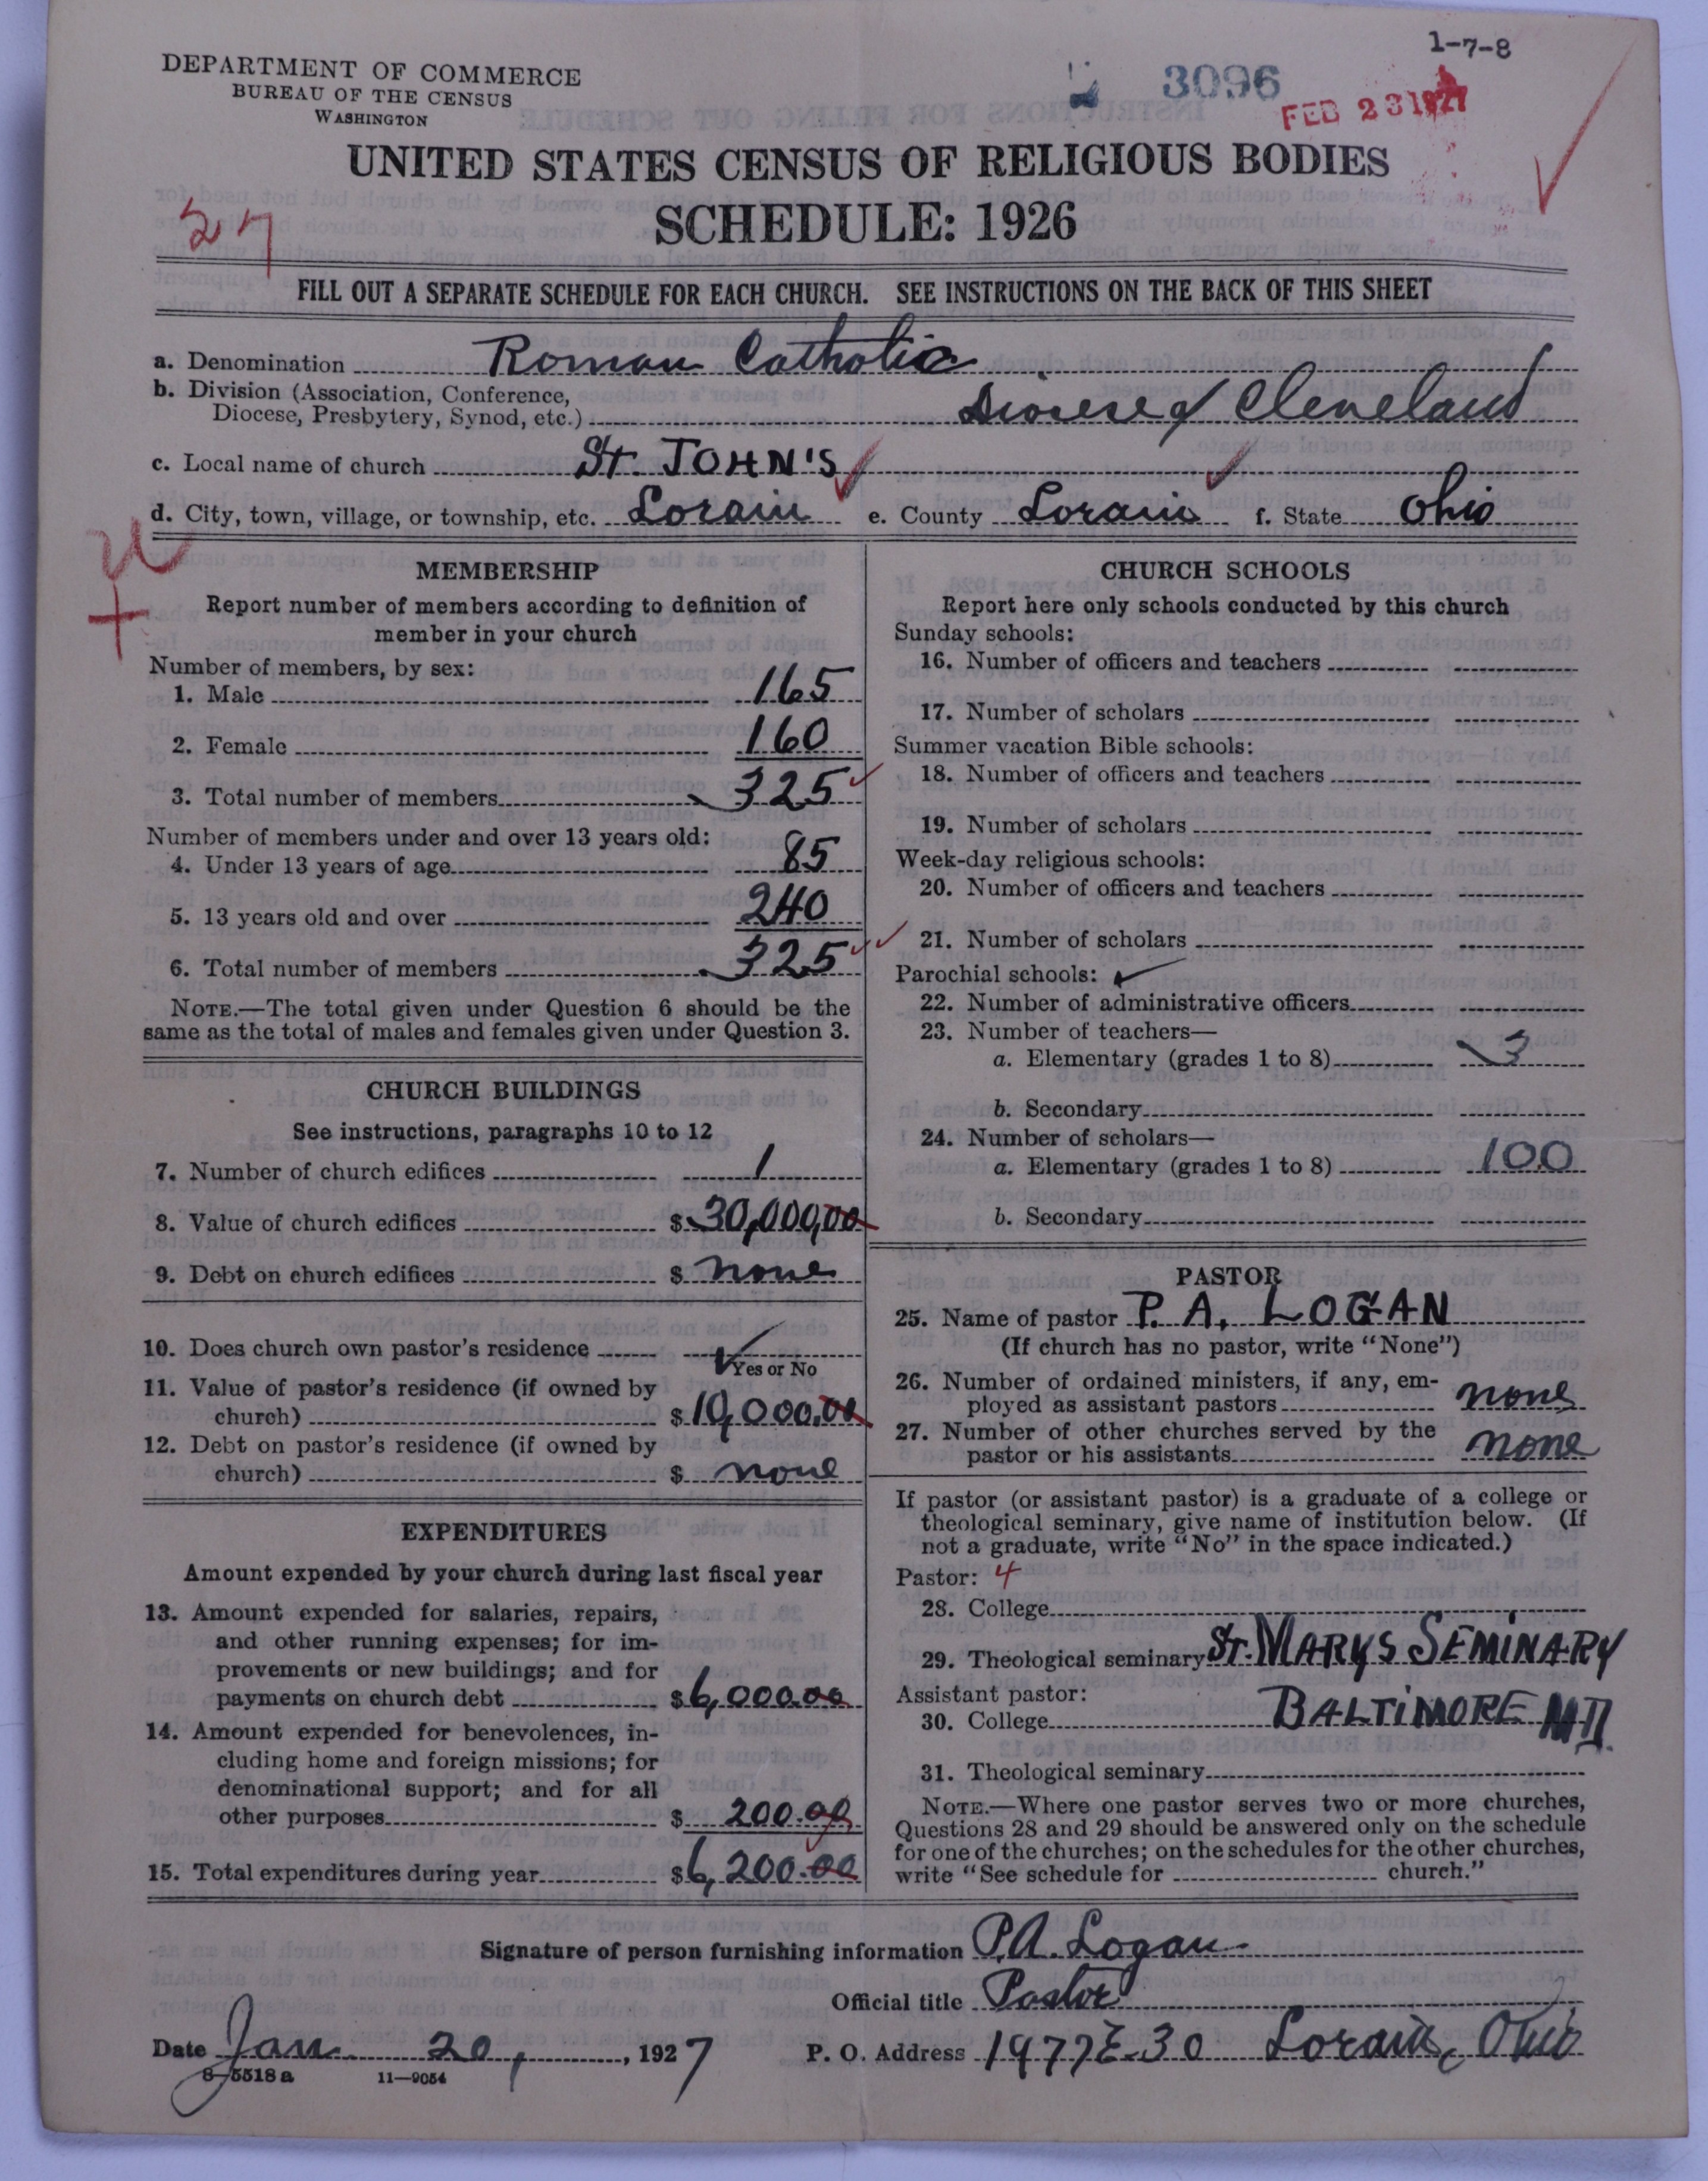 1-7-8
3096
FEB 23 1927
DEPARTMENT OF COMMERCE
BUREAU OF THE CENSUS
WASHINGTON
UNITED STATES CENSUS OF RELIGIOUS BODIES
SCHEDULE: 1926
27
FILL OUT A SEPARATE SCHEDULE FOR EACH CHURCH. SEE INSTRUCTIONS ON THE BACK OF THIS SHEET
a. Denomination Roman Catholic
b. Division (Association, Conference,
Diocese, Presbytery, Synod, etc.) Diocese of Cleveland
c. Local name of church St. JOHN'S
d. City, town, village, or township, etc. Lorain e. County Lorain f. State Ohio
MEMBERSHIP
Report number of members according to definition of
member in your church
Number of members, by sex:
1. Male 165
2. Female 160
3. Total number of members 325
Number of members under and over 13 years old:
4. Under 13 years of age 85
5. 13 years old and over 240
6. Total number of members 325
NOTE.—The total given under Question 6 should be the
same as the total of males and females given under Question 3.
CHURCH BUILDINGS
See instructions, paragraphs 10 to 12
7. Number of church edifices 1
8. Value of church edifices $ 30,000,00
9. Debt on church edifices $ none
10. Does church own pastor's residence ✓
Yes or No
11. Value of pastor's residence (if owned by
church) $ 10,000.00
12. Debt on pastor's residence (if owned by
church) $ none
EXPENDITURES
Amount expended by your church during last fiscal year
13. Amount expended for salaries, repairs,
and other running expenses; for im-
provements or new buildings; and for
payments on church debt $ 6,000.00
14. Amount expended for benevolences, in-
cluding home and foreign missions; for
denominational support; and for all
other purposes $ 200.00
15. Total expenditures during year $ 6,200.00
CHURCH SCHOOLS
Report here only schools conducted by this church
Sunday schools:
16. Number of officers and teachers
17. Number of scholars
Summer vacation Bible schools:
18. Number of officers and teachers
19. Number of scholars
Week-day religious schools:
20. Number of officers and teachers
21. Number of scholars
Parochial schools: ✓
22. Number of administrative officers
23. Number of teachers—
a. Elementary (grades 1 to 8) 3
b. Secondary
24. Number of scholars—
a. Elementary (grades 1 to 8) 100
b. Secondary
PASTOR
25. Name of pastor P. A. LOGAN
(If church has no pastor, write "None")
26. Number of ordained ministers, if any, em-
ployed as assistant pastors none
27. Number of other churches served by the
pastor or his assistants none
If pastor (or assistant pastor) is a graduate of a college or
theological seminary, give name of institution below. (If
not a graduate, write "No" in the space indicated.)
Pastor: 4
28. College
29. Theological seminary ST. MARY'S SEMINARY
Assistant pastor:
30. College BALTIMORE MD.
31. Theological seminary
NOTE.—Where one pastor serves two or more churches,
Questions 28 and 29 should be answered only on the schedule
for one of the churches; on the schedules for the other churches,
write "See schedule for church."
Signature of person furnishing information P.A. Logan
Official title Pastor
Date Jan 20, 1927 P. O. Address 1977 E. 30 Lorain, Ohio
8-5518a 11—9054